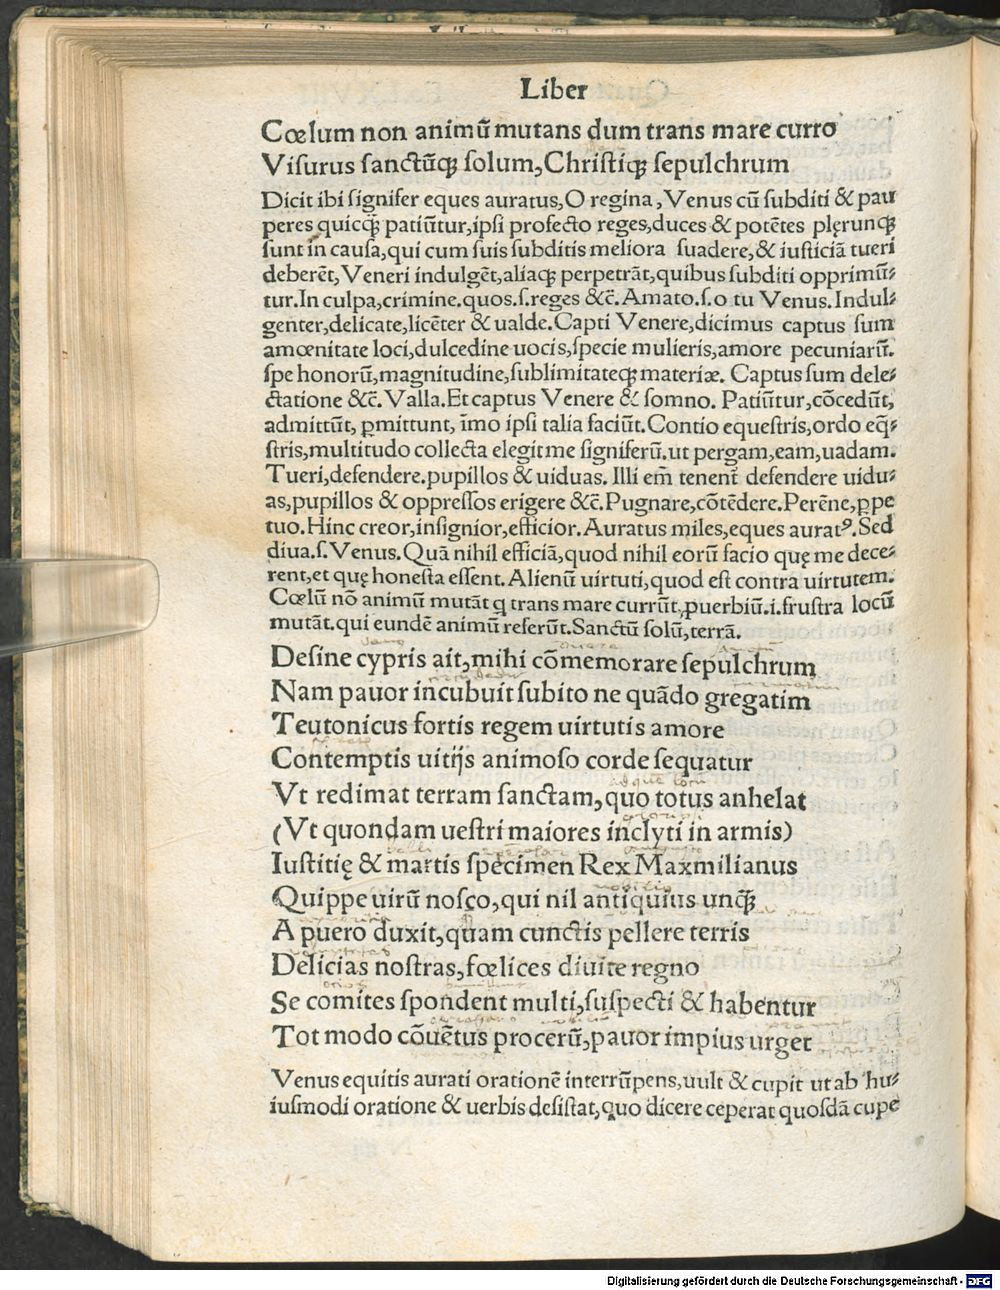 Liber
Cœlum non animũ mutans dum trans mare curro
Viſurus ſanctũqꝫ ſolum, Chriſtiqꝫ ſepulchrum
Dicit ibi ſignifer eques auratus, O regina, Venus cũ ſubditi & pau
peres quicqꝫ̃ patiũtur, ipſi profecto reges, duces & potẽtes plęrunqꝫ
ſunt in cauſa, qui cum ſuis ſubditis meliora ſuadere, & iuſticiã tueri
deberẽt, Veneri indulgẽt, aliaqꝫ perpetrãt, quibus ſubditi opprimũ⸗
tur. In culpa, crimine. quos. ſ. reges &c̃. Amato. ſ. o tu Venus. Indul⸗
genter, delicate, licẽter & ualde. Capti Venere, dicimus captus ſum
amœnitate loci, dulcedine uocis, ſpecie mulieris, amore pecuniarũ.
ſpe honorũ, magnitudine, ſublimitateqꝫ materiæ. Captus ſum dele⸗
ctatione &c̃. Valla. Et captus Venere & ſomno. Patiũtur, cõcedũt,
admittũt, ꝑmittunt, ĩmo ipſi talia faciũt. Contio equeſtris, ordo eq̃⸗
ſtris, multitudo collecta elegit me ſigniferũ. ut pergam, eam, uadam.
Tueri, defendere. pupillos & uiduas. Illi em̃ tenent᷑ defendere uidu⸗
as, pupillos & oppreſſos erigere &c̃. Pugnare, cõtẽdere. Perẽne, ꝑpe
tuo. Hinc creor, inſignior, efficior. Auratus miles, eques auratꝰ. Sed
diua. ſ. Venus. Quã nihil efficiã, quod nihil eorũ facio quę me dece⸗
rent, et quę honeſta eſſent. Alienũ uirtuti, quod eſt contra uirtutem.
Cœlũ nõ animũ mutãt q trans mare currũt, ꝓuerbiũ. i. fruſtra locũ
mutãt. qui eundẽ animũ referũt. Sanctũ ſolũ, terrã.
Deſine cypris ait, mihi cõmemorare ſepulchrum
Nam pauor incubuit ſubito ne quãdo gregatim
Teutonicus fortis regem uirtutis amore
Contemptis uitijs animoſo corde ſequatur
Vt redimat terram ſanctam, quo totus anhelat
(Vt quondam ueſtri maiores inclyti in armis)
Iuſtitię & martis ſpecimen Rex Maxmilianus
Quippe uirũ noſco, qui nil antiquius unqꝫ̃
A puero duxit, quam cunctis pellere terris
Delicias noſtras, fœlices diuite regno
Se comites ſpondent multi, ſuſpecti & habentur
Tot modo cõuẽtus procerũ, pauor impius urget
Venus equitis aurati orationẽ interrũpens, uult & cupit ut ab hu⸗
iuſmodi oratione & uerbis deſiſtat, quo dicere ceperat quoſdã cupe
Digitalisierung gefördert durch die Deutsche Forschungsgemeinschaft - DFG